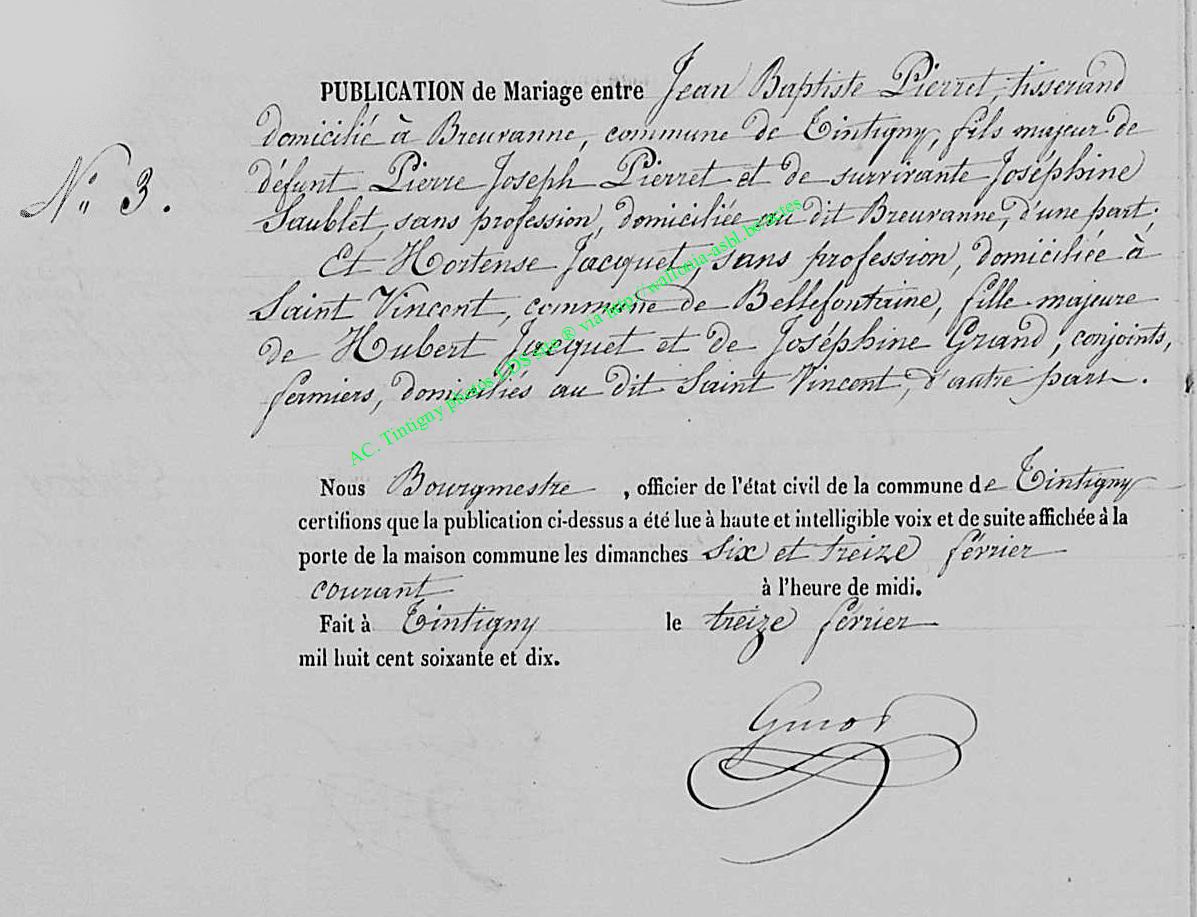 PUBLICATION de Mariage entre Jean Baptiste Pierret, tisserand
domicilié à Breuvanne, commune de Tintigny, fils majeur de
N° 3.
défunt Pierre Joseph Pierret et de survivante Joséphine
Saublet, sans profession, domiciliée au dit Breuvanne, d'une part;
Et Hortense Jacquet, sans profession, domiciliée à
Saint Vincent, commune de Bellefontaine, fille majeure
de Hubert Jacquet et de Joséphine Grand, conjoints,
fermiers, domiciliés au dit Saint Vincent, d'autre part.
AC. Tintigny photos EDS via http://wallonia-asbl.be/actes
Nous Bourgmestre, officier de l'état civil de la commune de Tintigny
certifions que la publication ci-dessus a été lue à haute et intelligible voix et de suite affichée à la
porte de la maison commune les dimanches six et treize février
courant à l'heure de midi.
Fait à Tintigny le treize février
mil huit cent soixante et dix.